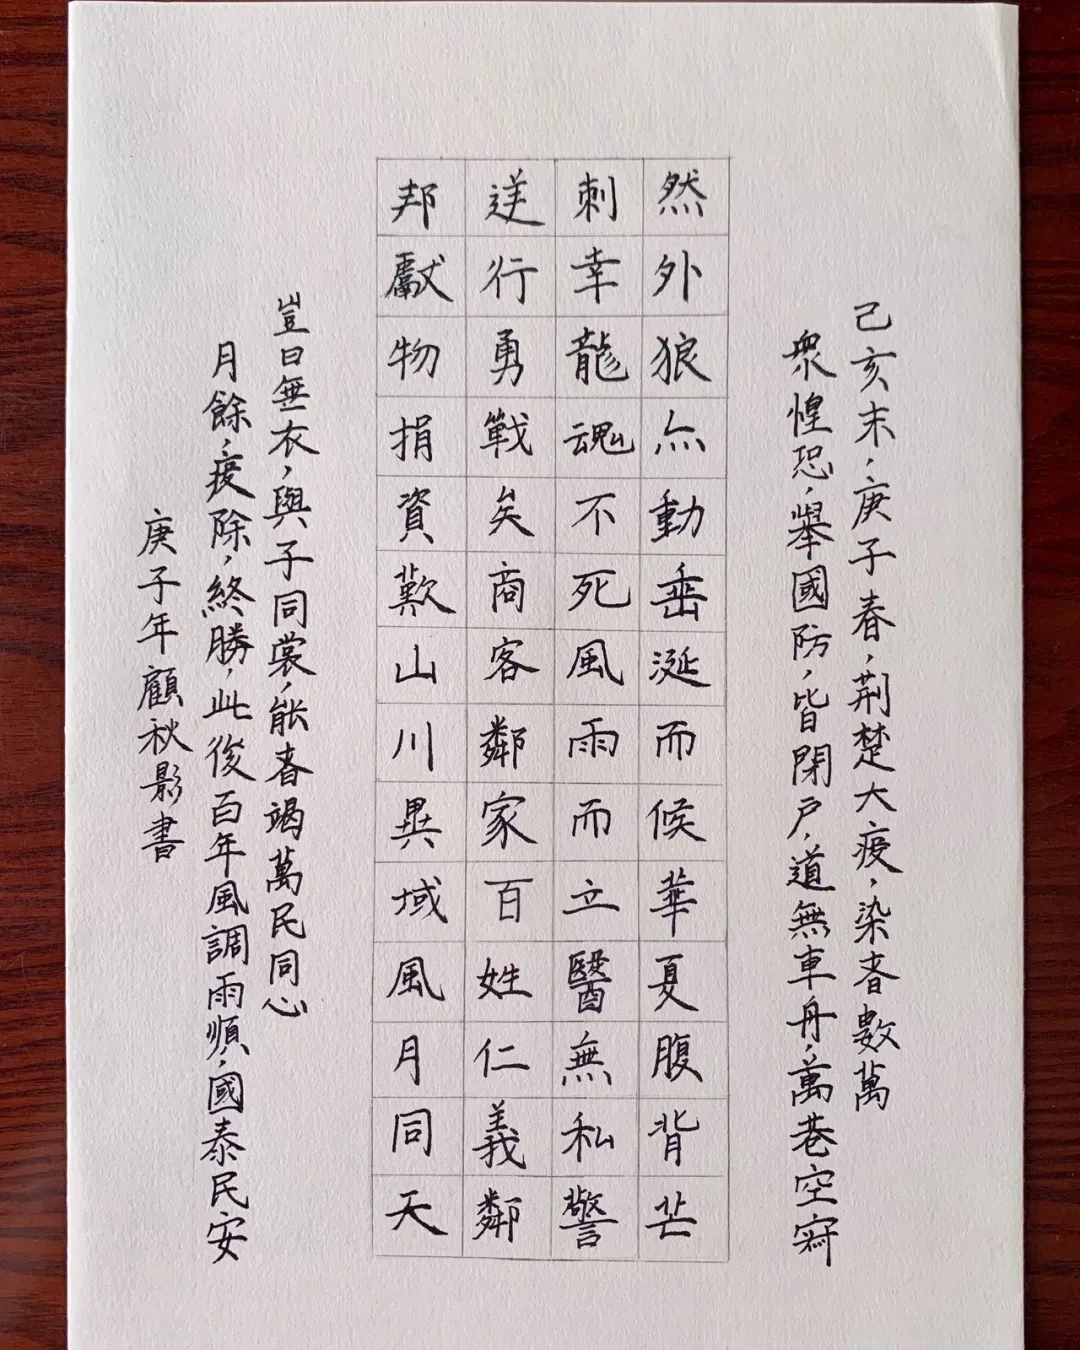 己亥末，庚子春，荆楚大疫，染者數萬
衆惶恐，舉國防，皆閉户，道無車舟，萬巷空寂
然外狼亦動垂涎而候華夏腹背芒
刺幸龍魂不死風雨而立醫無私警
逆行勇戰矣商客鄰家百姓仁義鄰
邦獻物捐資歎山川異域風月同天
豈曰無衣，與子同裳，能者竭萬民同心
月餘，疫除，終勝，此後百年風調雨順，國泰民安
庚子年顧秋影書